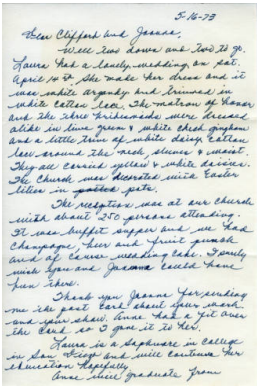 5-16-73
Dear Clifford and Joanna,
Well two down and two to go.
Laura had a lovely wedding, on Sat.
April 14th She made her dress and it
was white organdy and trimmed in
white cotton lace. The matron of honor
and the three bridesmaids were dressed
alike in lime green & white check gingham
and a little trim of white daisy cotton
lace around the neck, sleeves & waist.
They all carried yellow & white daisies.
The Church was decorated with Easter
lilies in pots.
The reception was at our church
with about 250 persons attending.
It was buffet supper and we had
Champagne, beer and fruit punch
and of course wedding cake. I surely
wish you and Joanna could have
been there.
Thank you Joanna for sending
me the post card about your work
and your show. Anne had a fit over
the card so I gave it to her.
Laura is a Sophmore in college
in San Diego and will continue her
education hopefully.
Anne will graduate from